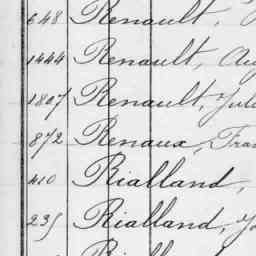 648 Renault,
1444 Renault, Aug
1807 Renault, Jule
872 Renaux, Fran
410 Rialland,
235 Rialland,